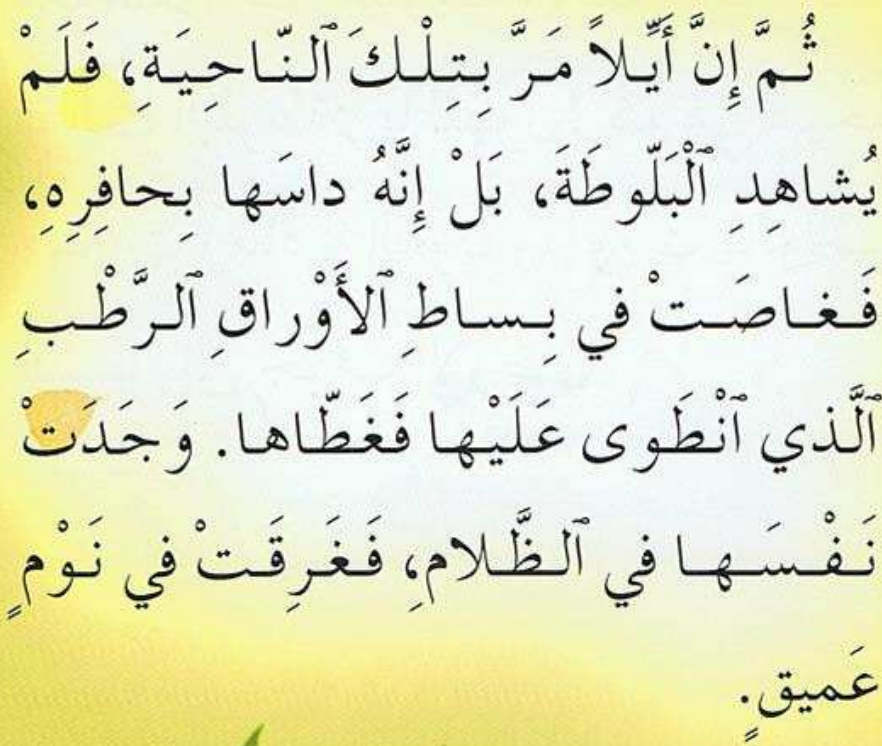 ثُمَّ إِنَّ أَيِّلاً مَرَّ بِتِلْكَ ٱلنّاحِيَةِ، فَلَمْ
يُشاهِدِ ٱلْبَلّوطَةَ، بَلْ إِنَّهُ داسَها بِحافِرِهِ،
فَغاصَتْ في بِساطِ ٱلأَوْراقِ ٱلرَّطْبِ
ٱلَّذي ٱنْطَوى عَلَيْها فَغَطّاها. وَجَدَتْ
نَفْسَها في ٱلظَّلامِ، فَغَرِقَتْ في نَوْمٍ
عَميقٍ.